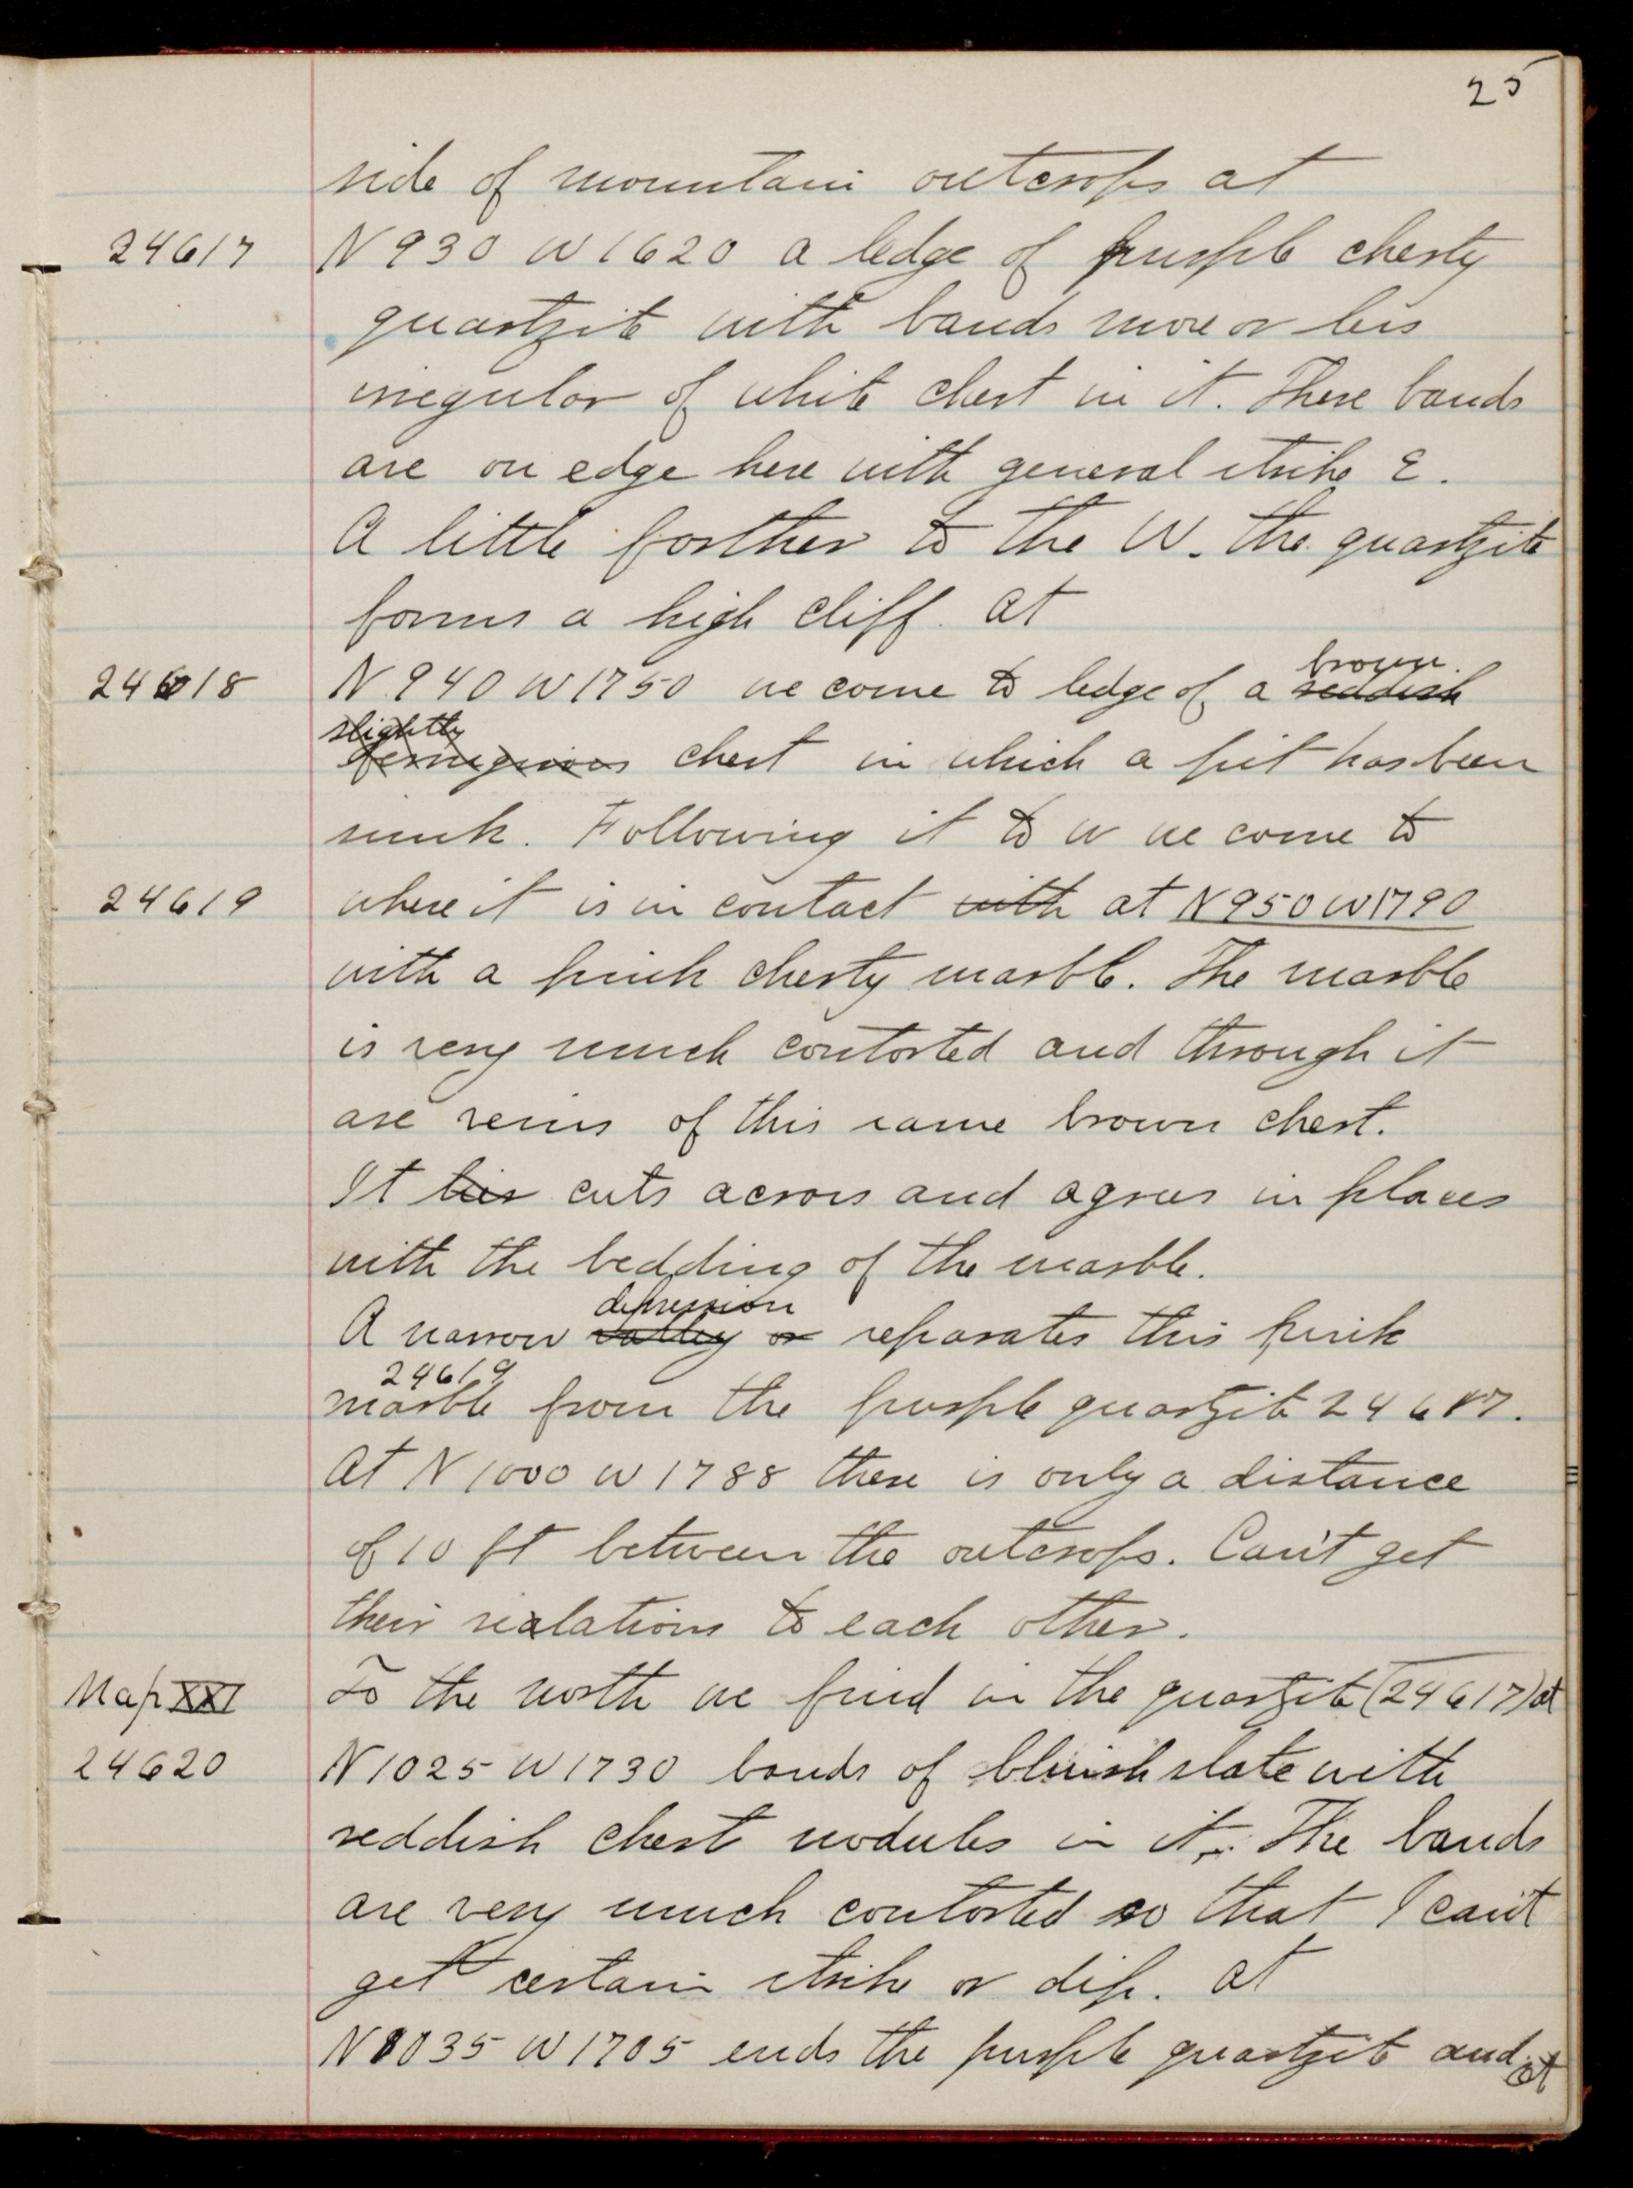 25
side of mountain outcrops at
24617 N930 W1620 a ledge of purple cherty
quartzite with bands more or less
irregular of white chert in it. These bands
are on edge here with general strike E.
A little farther to the W. the quartzite
forms a high cliff. At
brown.
24618 N940 W1750 we come to ledge of a reddish
slightly
ferruginous chert in which a pit has been
sunk. Following it to W we come to
24619 where it is in contact with at N950 W1790
with a pink cherty marble. The marble
is very much contorted and through it
are veins of this same brown chert.
It lies cuts across and agrees in places
with the bedding of the marble.
depression
A narrow valley or separates this pink
24619
marble from the purple quartzite 24617.
At N1000 W1788 there is only a distance
of 10 ft between the outcrops. Can't get
their relations to each other.
Map XXI To the north we find in the quartzite (24617) at
24620 N1025 W1730 bands of bluish slate with
reddish chert nodules in it. The bands
are very much contorted so that I can't
get certain strike or dip. At
N1035 W1705 ends the purple quartzite and at